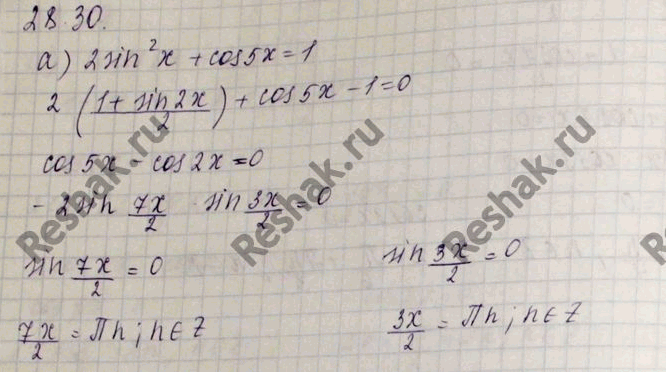 28.30.
а) 2sin²x + cos5x = 1
2 (1 + sin2x / 2) + cos5x - 1 = 0
cos5x - cos2x = 0
- 2sin 7x/2 · sin 3x/2 = 0
sin 7x/2 = 0 sin 3x/2 = 0
7x/2 = Пn; n ∈ Z 3x/2 = Пn; n ∈ Z
Reshak.ru
Reshak.ru
Reshak.ru